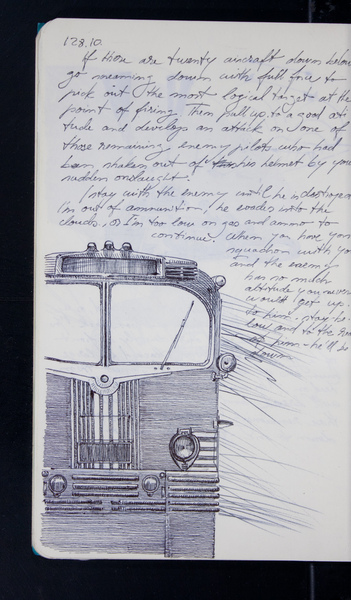 128.10.
If there are twenty aircraft down below
go meaning down with full force to
pick out the most logical target at the
point of firing. Then pull up to a good alti
tude and develop an attack on one of
those remaining enemy pilots who had
been shaken out of his helmet by your
sudden onslaught.
I stay with the enemy until he is destroyed
I'm out of ammunition, he evades into the
clouds, or I'm too low on gas and ammo to
continue. When you have your
squadron with you
and the enemy
has so much
altitude you never
would get up
to him, stay be-
low and to the
of him - he'll be
down